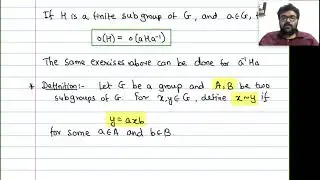 If H is a finite subgroup of G, and a∈G,
o(H) = o(aHa⁻¹)
The same exercises above can be done for a⁻¹Ha
* Definition:- Let G be a group and A,B be two
subgroups of G. For x,y∈G, define x~y if
y = axb
for some a∈A and b∈B.